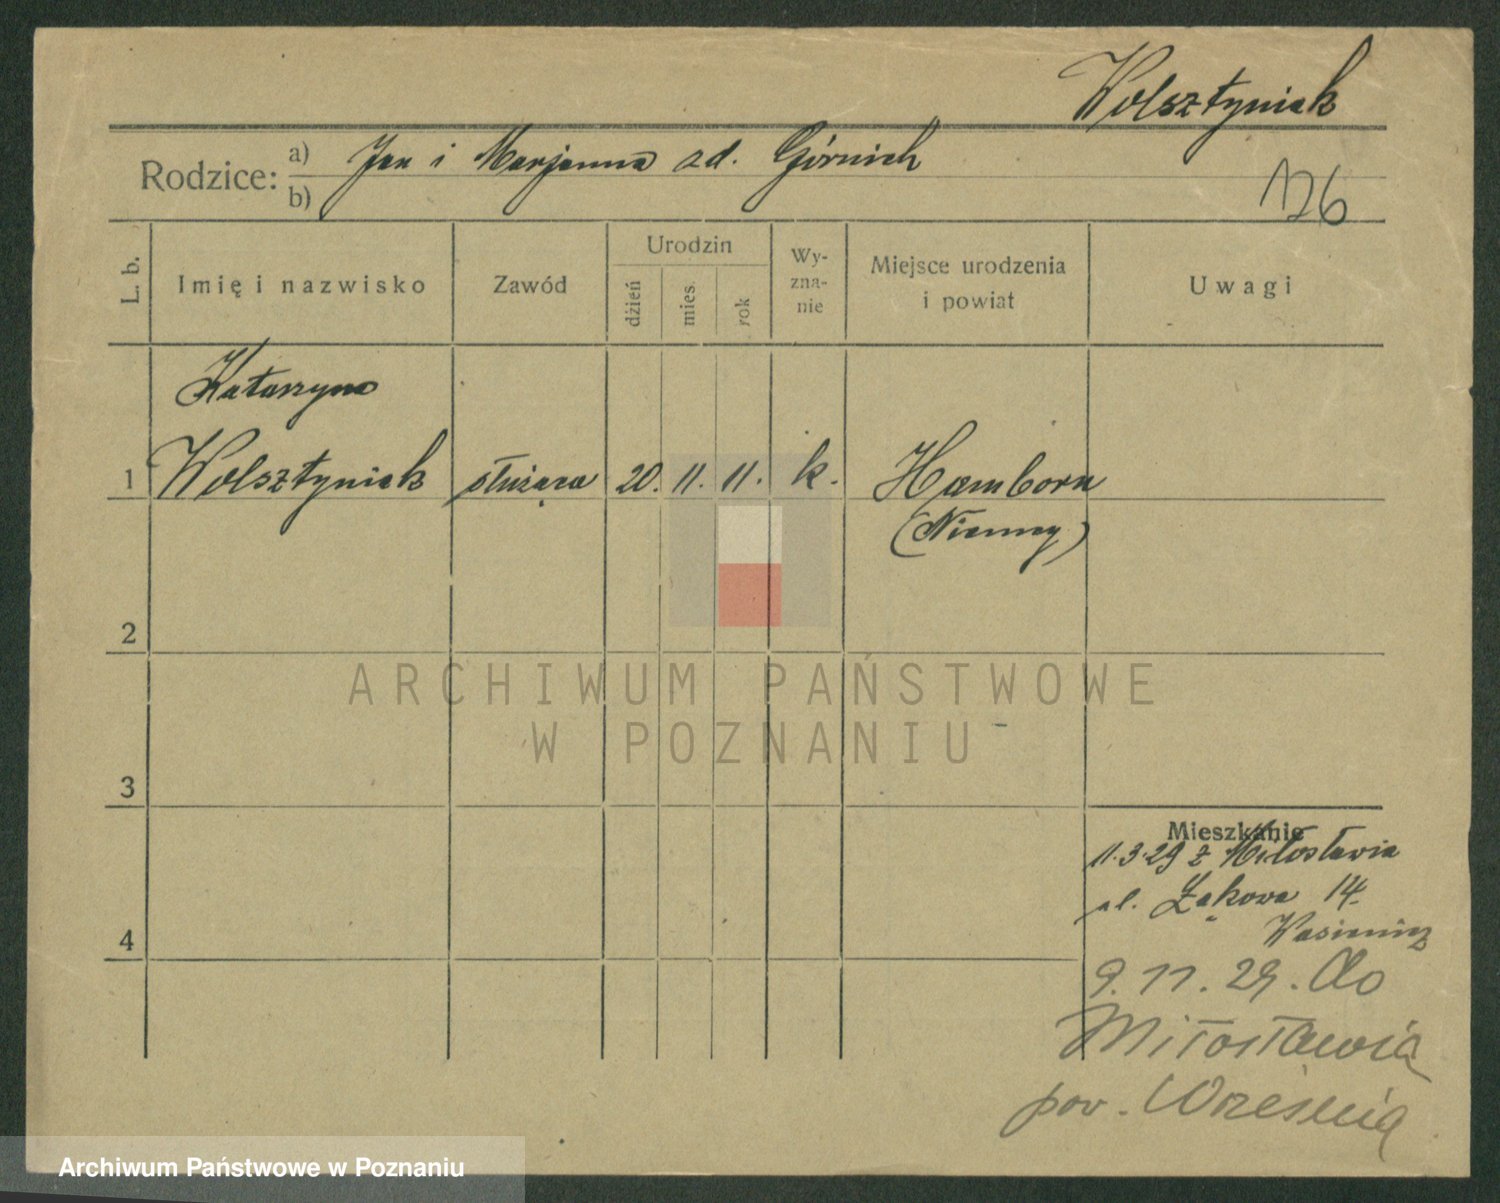 Wolsztyniak
Rodzice: a) Jan i Marjanna zd. Górniak
b)
126
L. b. Imię i nazwisko Zawód Urodzin dzień mies. rok Wy-zna-nie Miejsce urodzenia i powiat Uwagi
Katarzyna
1 Wolsztyniak służąca 20. 11. 11. k. Hamborn
(Niemcy)
2
ARCHIWUM PAŃSTWOWE
W POZNANIU
3
Mieszkanie
11.3.29 z Miłosławia
ul. Łąkowa 14
4
9.11.29. do
Miłosławia
pow. Września
Archiwum Państwowe w Poznaniu